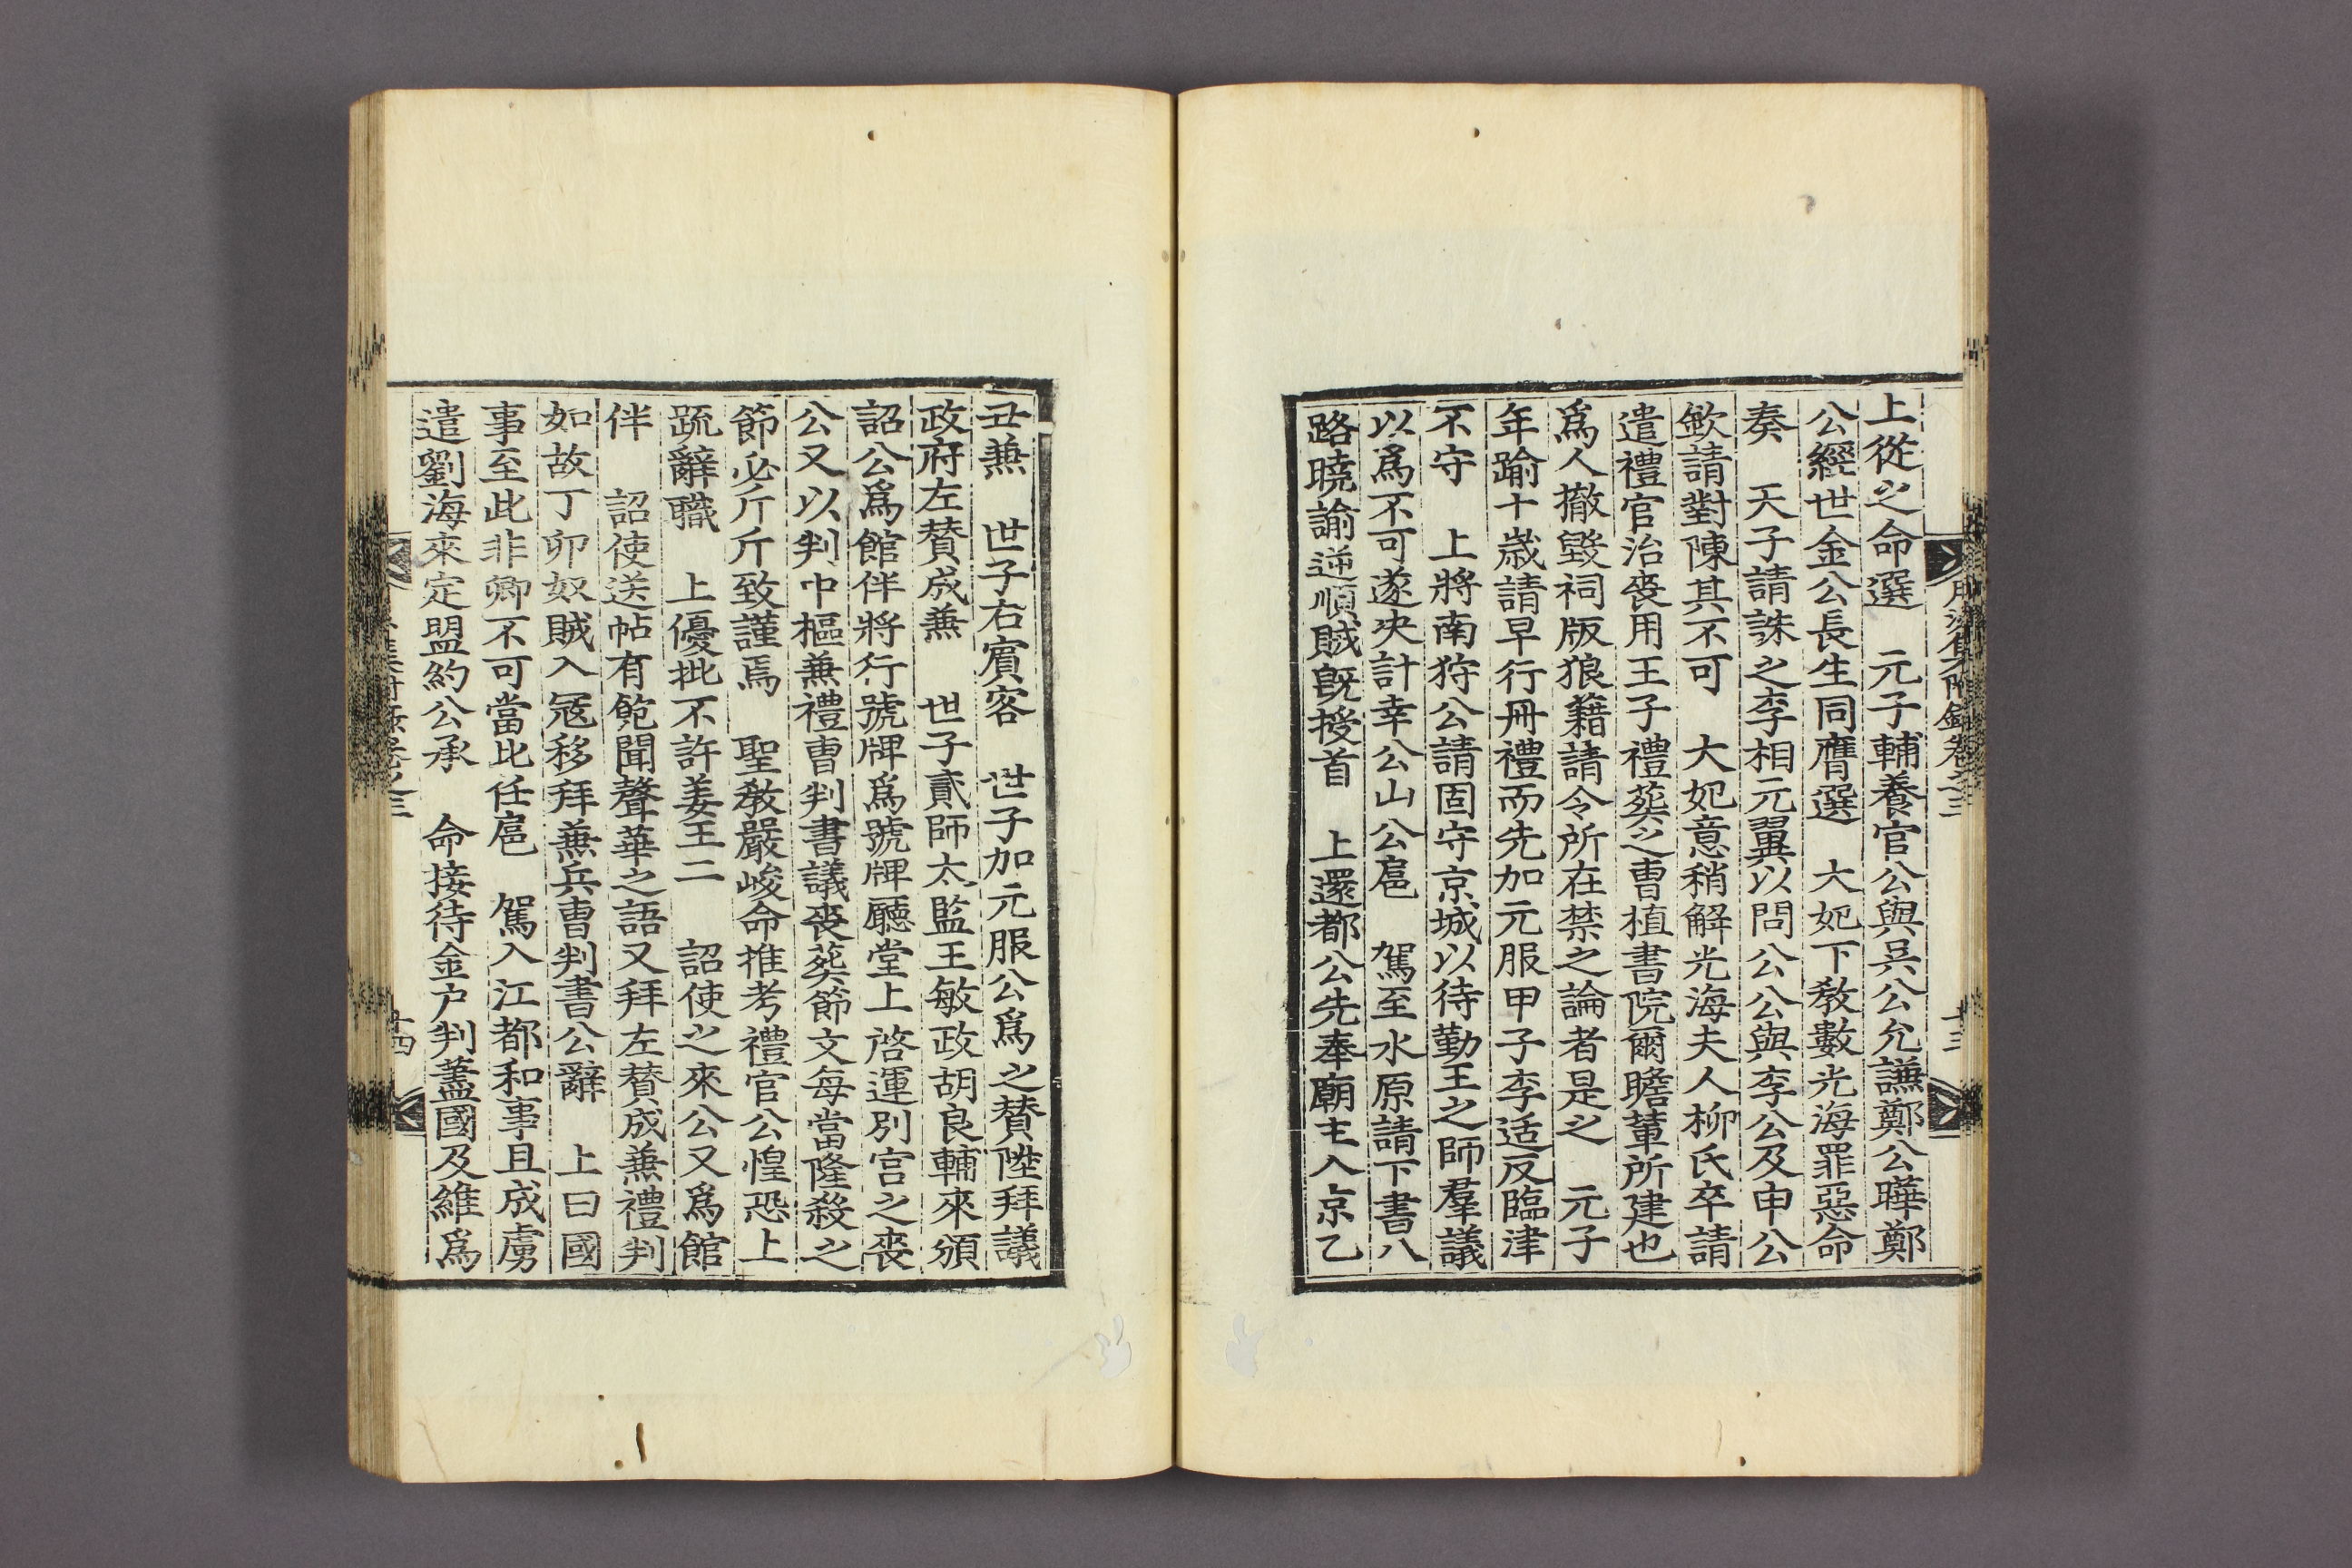 上從之命選　元子輔養官公與吳公允謙鄭公曄鄭
公經世金公長生同膺選　大妃下敎數光海罪惡命
奏　天子請誅之李相元翼以問公公與李公及申公
欽請對陳其不可　大妃意稍解光海夫人柳氏卒請
遣禮官治喪用王子禮葬之曹植書院爾瞻輩所建也
爲人撤毀祠版狼藉請令所在禁之論者是之　元子
年踰十歲請早行冊禮而先加元服甲子李适反臨津
不守　上將南狩公請固守京城以待勤王之師羣議
以爲不可遂决計幸公山公扈　駕至水原請下書八
路曉諭逆順賊旣授首　上還都公先奉廟主入京乙
丑兼　世子右賓客　世子加元服公爲之賛陞拜議
政府左賛成兼　世子貳師太監王敏政胡良輔來頒
詔公爲館伴將行號牌爲號牌廳堂上啓運別宮之喪
公又以判中樞兼禮曹判書議喪葬節文每當隆殺之
節必斤斤致謹焉　聖敎嚴峻命推考禮官公惶恐上
疏辭職　上優批不許姜王二　詔使之來公又爲館
伴　詔使送帖有飽聞聲華之語又拜左賛成兼禮判
如故丁卯奴賊入冦移拜兼兵曹判書公辭　上曰國
事至此非卿不可當此任扈　駕入江都和事且成虜
遣劉海來定盟約公承　命接待金户判藎國及維爲